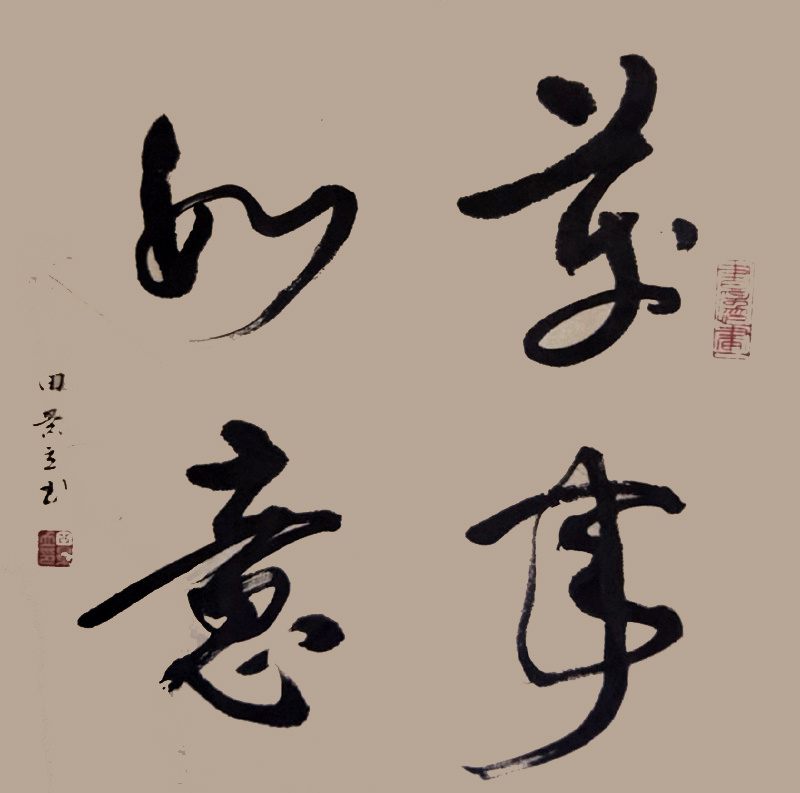 萬事
如意
田景立书